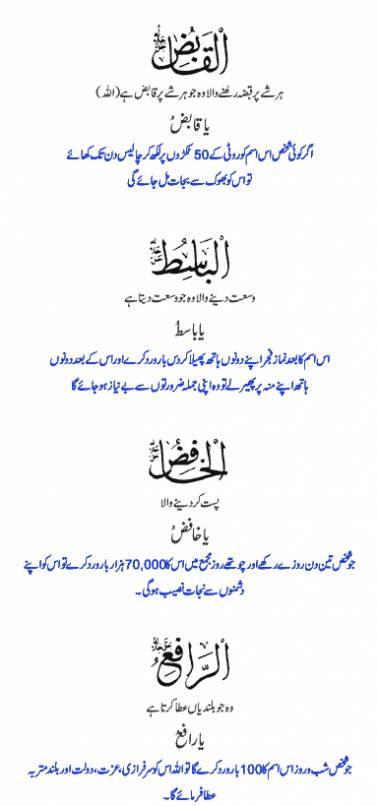 القابض جل جلالہ
ہر شے پر قبضہ رکھنے والا وہ جو ہر شے پر قابض ہے (اللہ)
یا قابضُ
اگر کوئی شخص اس اسم کو روٹی کے 50 ٹکڑوں پر لکھ کر چالیس دن تک کھائے
تو اس کو بھوک سے نجات مل جائے گی
الباسط جل جلالہ
وسعت دینے والا وہ جو وسعت دیتا ہے
یا باسطُ
اس اسم کا بعد نماز فجر اپنے دونوں ہاتھ پھیلا کر دس بار ورد کرے اور اس کے بعد دونوں
ہاتھ اپنے منہ پر پھیر لے تو وہ اپنی جملہ ضرورتوں سے بے نیاز ہو جائے گا
الخافض جل جلالہ
پست کر دینے والا
یا خافضُ
جو شخص تین دن روزے رکھے اور چوتھے روز مجمع میں اس کا 70,000 ہزار بار ورد کرے تو اس کو اپنے
دشمنوں سے نجات نصیب ہو گی ۔
الرافع جل جلالہ
وہ جو بلندیاں عطا کرتا ہے
یا رافعُ
جو شخص شب و روز اس اسم کا 100 بار ورد کرے گا تو اللہ اس کو سرفرازی، عزت، دولت اور بلند مرتبہ
عطا فرمائے گا ۔